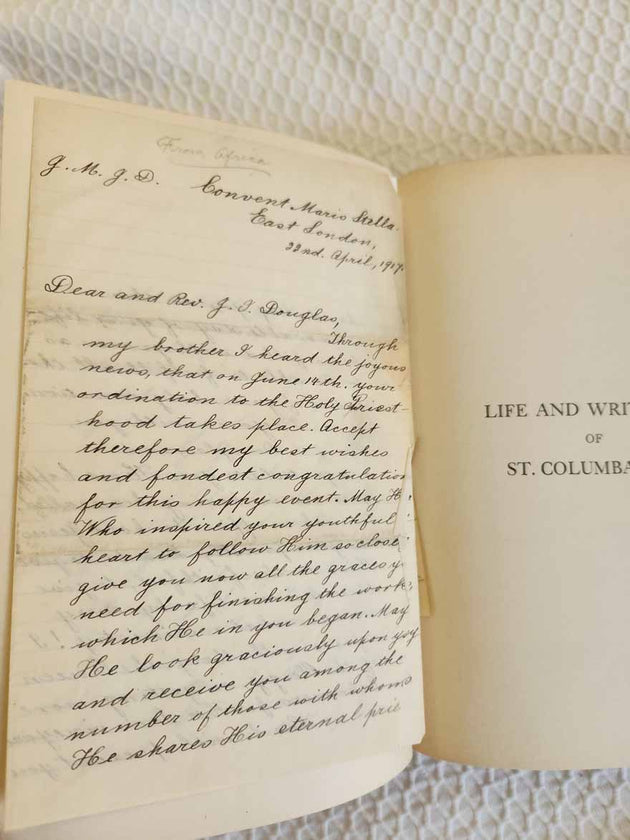 From Africa
J. M. J. D.
Convent Maris Stella
East London,
22nd. April, 1917.
Dear and Rev. J. J. Douglas,
Through
my brother I heard the joyous
news, that on June 14th. your
ordination to the Holy Priest-
hood takes place. Accept
therefore my best wishes
and fondest congratulation
for this happy event. May He
Who inspired your youthful
heart to follow Him so close
give you now all the graces y
need for finishing the work,
which He in you began. May
He look graciously upon you
and receive you among the
number of those with whom
He shares His eternal prie
LIFE AND WRIT
OF
ST. COLUMBA